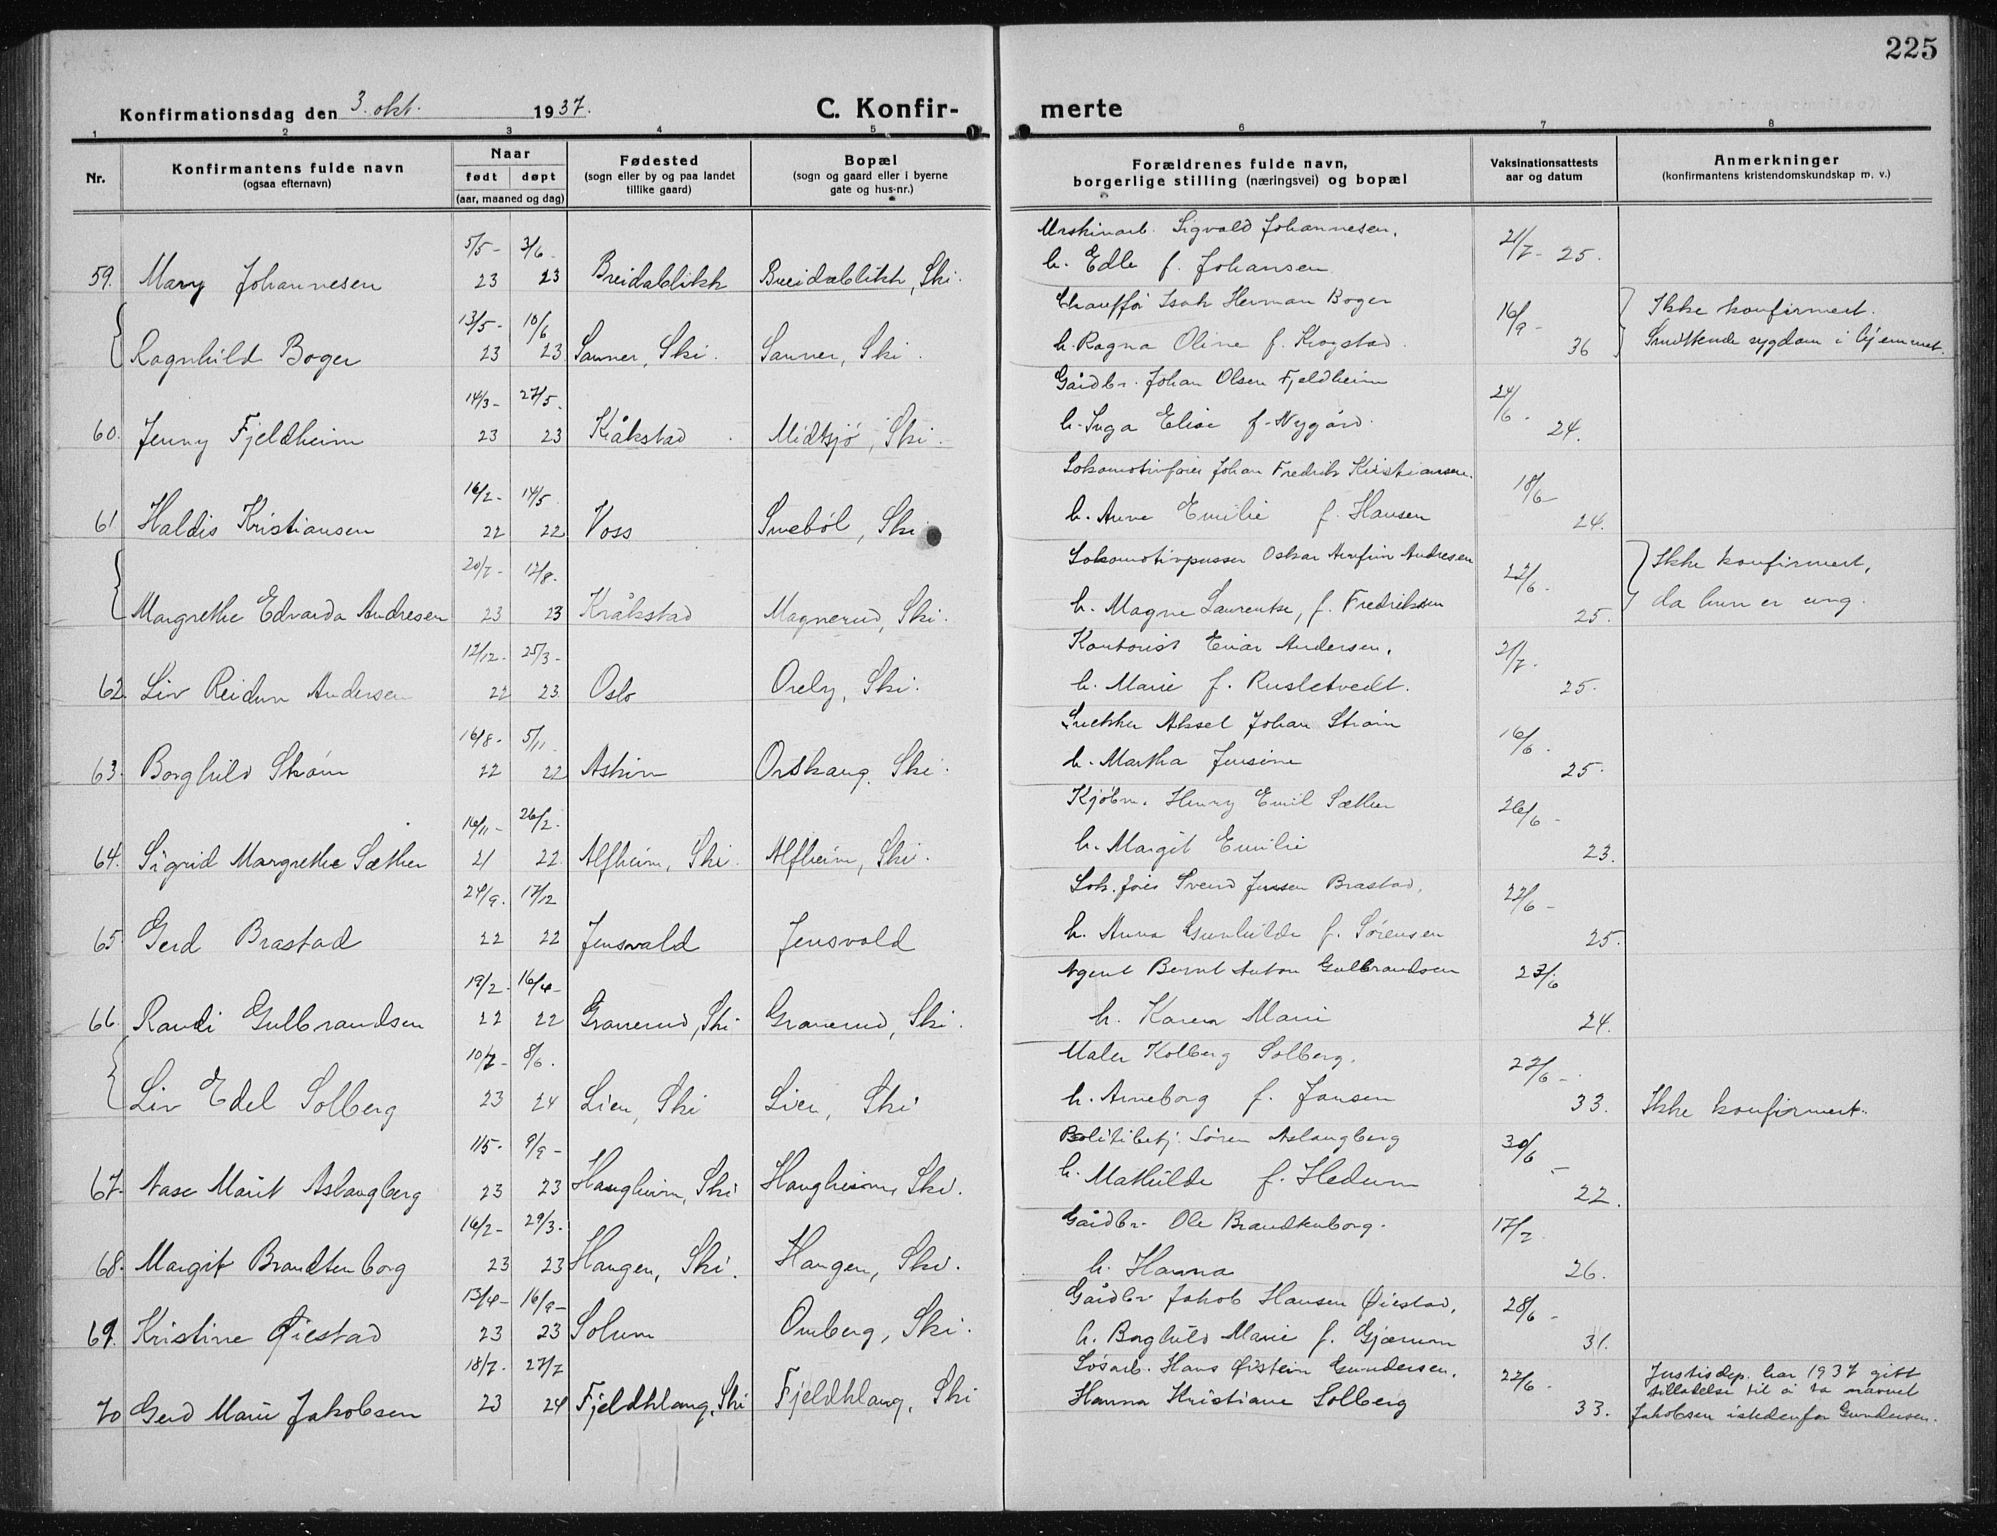 225
Konfirmationsdag den 3. okt. 1937. C. Konfir- merte
1 2 3 4 5 6 7 8
Nr. Konfirmantens fulde navn (ogsaa efternavn) Naar født døpt (aar, maaned og dag) Fødested (sogn eller by og paa landet tillike gaard) Bopæl (sogn og gaard eller i byerne gate og hus-nr.) Forældrenes fulde navn, borgerlige stilling (næringsvei) og bopæl Vaksinationsattests aar og datum Anmerkninger (konfirmantens kristendomskundskap m. v.)
5/5- 3/6- Sigvald Johannesen, 21/7-
59. Mary Johannesen 23 23 Breidablikk Breidablikk, Ski. h. Edle f. Johansen 25.
13/5- 10/6 Isak Herman Boger 16/9- Ikke konfirmert.
Ragnhild Boger 23 23 Sanner, Ski. Sanner, Ski. h. Ragna Oline f. Krogstad. 36 Smittende sygdom i hjemmet.
14/3- 27/5. Gårdbr. Johan Olsen Fjeldheim 24/6.
60. Jenny Fjeldheim 23 23 Kråkstad. Midtsjø, Ski. h. Inga Elise f. Nygård. 24.
16/2- 14/5. Johan Fredrik Kristiansen. 18/6-
61 Haldis Kristiansen 22 22 Voss Ski h. Anna Emilie f. Hansen 24.
20/7- 12/8. Lokomotivpusser Oskar Arnfin Andresen 22/6. Ikke konfirmert,
Margrethe Edvarda Andresen 23 23 Kråkstad Magnerud, Ski. h. Magne Laurentse, f. Fredriksen 25. da hun er ung.
12/12. 25/3- Kontorist Einar Andersen, 21/7.
62. Liv Reidun Andersen 22 23 Oslo Oreby, Ski. h. Marie f. Rusletvedt. 25.
16/8- 5/11. Snekker Aksel Johan Strøm 16/6.
63. Borghild Strøm 22 22 Askim Ski. h. Martha Jensine 25.
16/11- 26/2. Kjøbm. Henry Emil Sæther 26/6-
64. Sigrid Margrethe Sæther 21 22 Alfheim, Ski. Alfheim, Ski. h. Margit Emilie 23.
24/9. 17/12 Svend Jensen Brastad, 22/6-
65 Gerd Brastad 22 22 Jensvald Jensvold h. Anna Gunhilda f. Sørensen 25.
19/2- 16/4- Agent Bernt Anton Gulbrandsen 23/6
66. Randi Gulbrandsen 22 22 Granerud, Ski. Granerud, Ski. h. Karen Marie 24.
10/7- 8/6. Maler Kolberg Solberg. 22/6-
Liv Edel Solberg 23 24 Lien, Ski Lien, Ski h. Anneborg f. Jansen 33. Ikke konfirmert.
1/5- 9/9- Politibetj. Søren Aslangberg 30/6-
67. Aase Marit Aslangberg 23 23 Haugheim, Ski Haugheim, Ski. h. Mathilde f. Hedum 22.
16/2- 29/3- Gårdbr. Ole Brandtenborg. 17/7.
68. Margit Brandtenborg 23 23 Haugen, Ski. Haugen, Ski. h. Hanna 26.
13/4- 16/9- Gårdbr Jakob Hansen Øiestad, 28/6-
69. Kristine Øiestad 23 23 Solum Omberg, Ski. h. Borghild Marie f. Gjærum 31.
18/7. 27/7 Hans Øistein Gundersen, 22/6. Justisdep. har 1937 gitt
tillatelse til å ta navnet
70 Gerd Marie Jakobsen 23 24 Fjeldklang, Ski Fjeldklang, Ski Hanna Kristiane Solberg 33. Jakobsen istedenfor Gundersen.